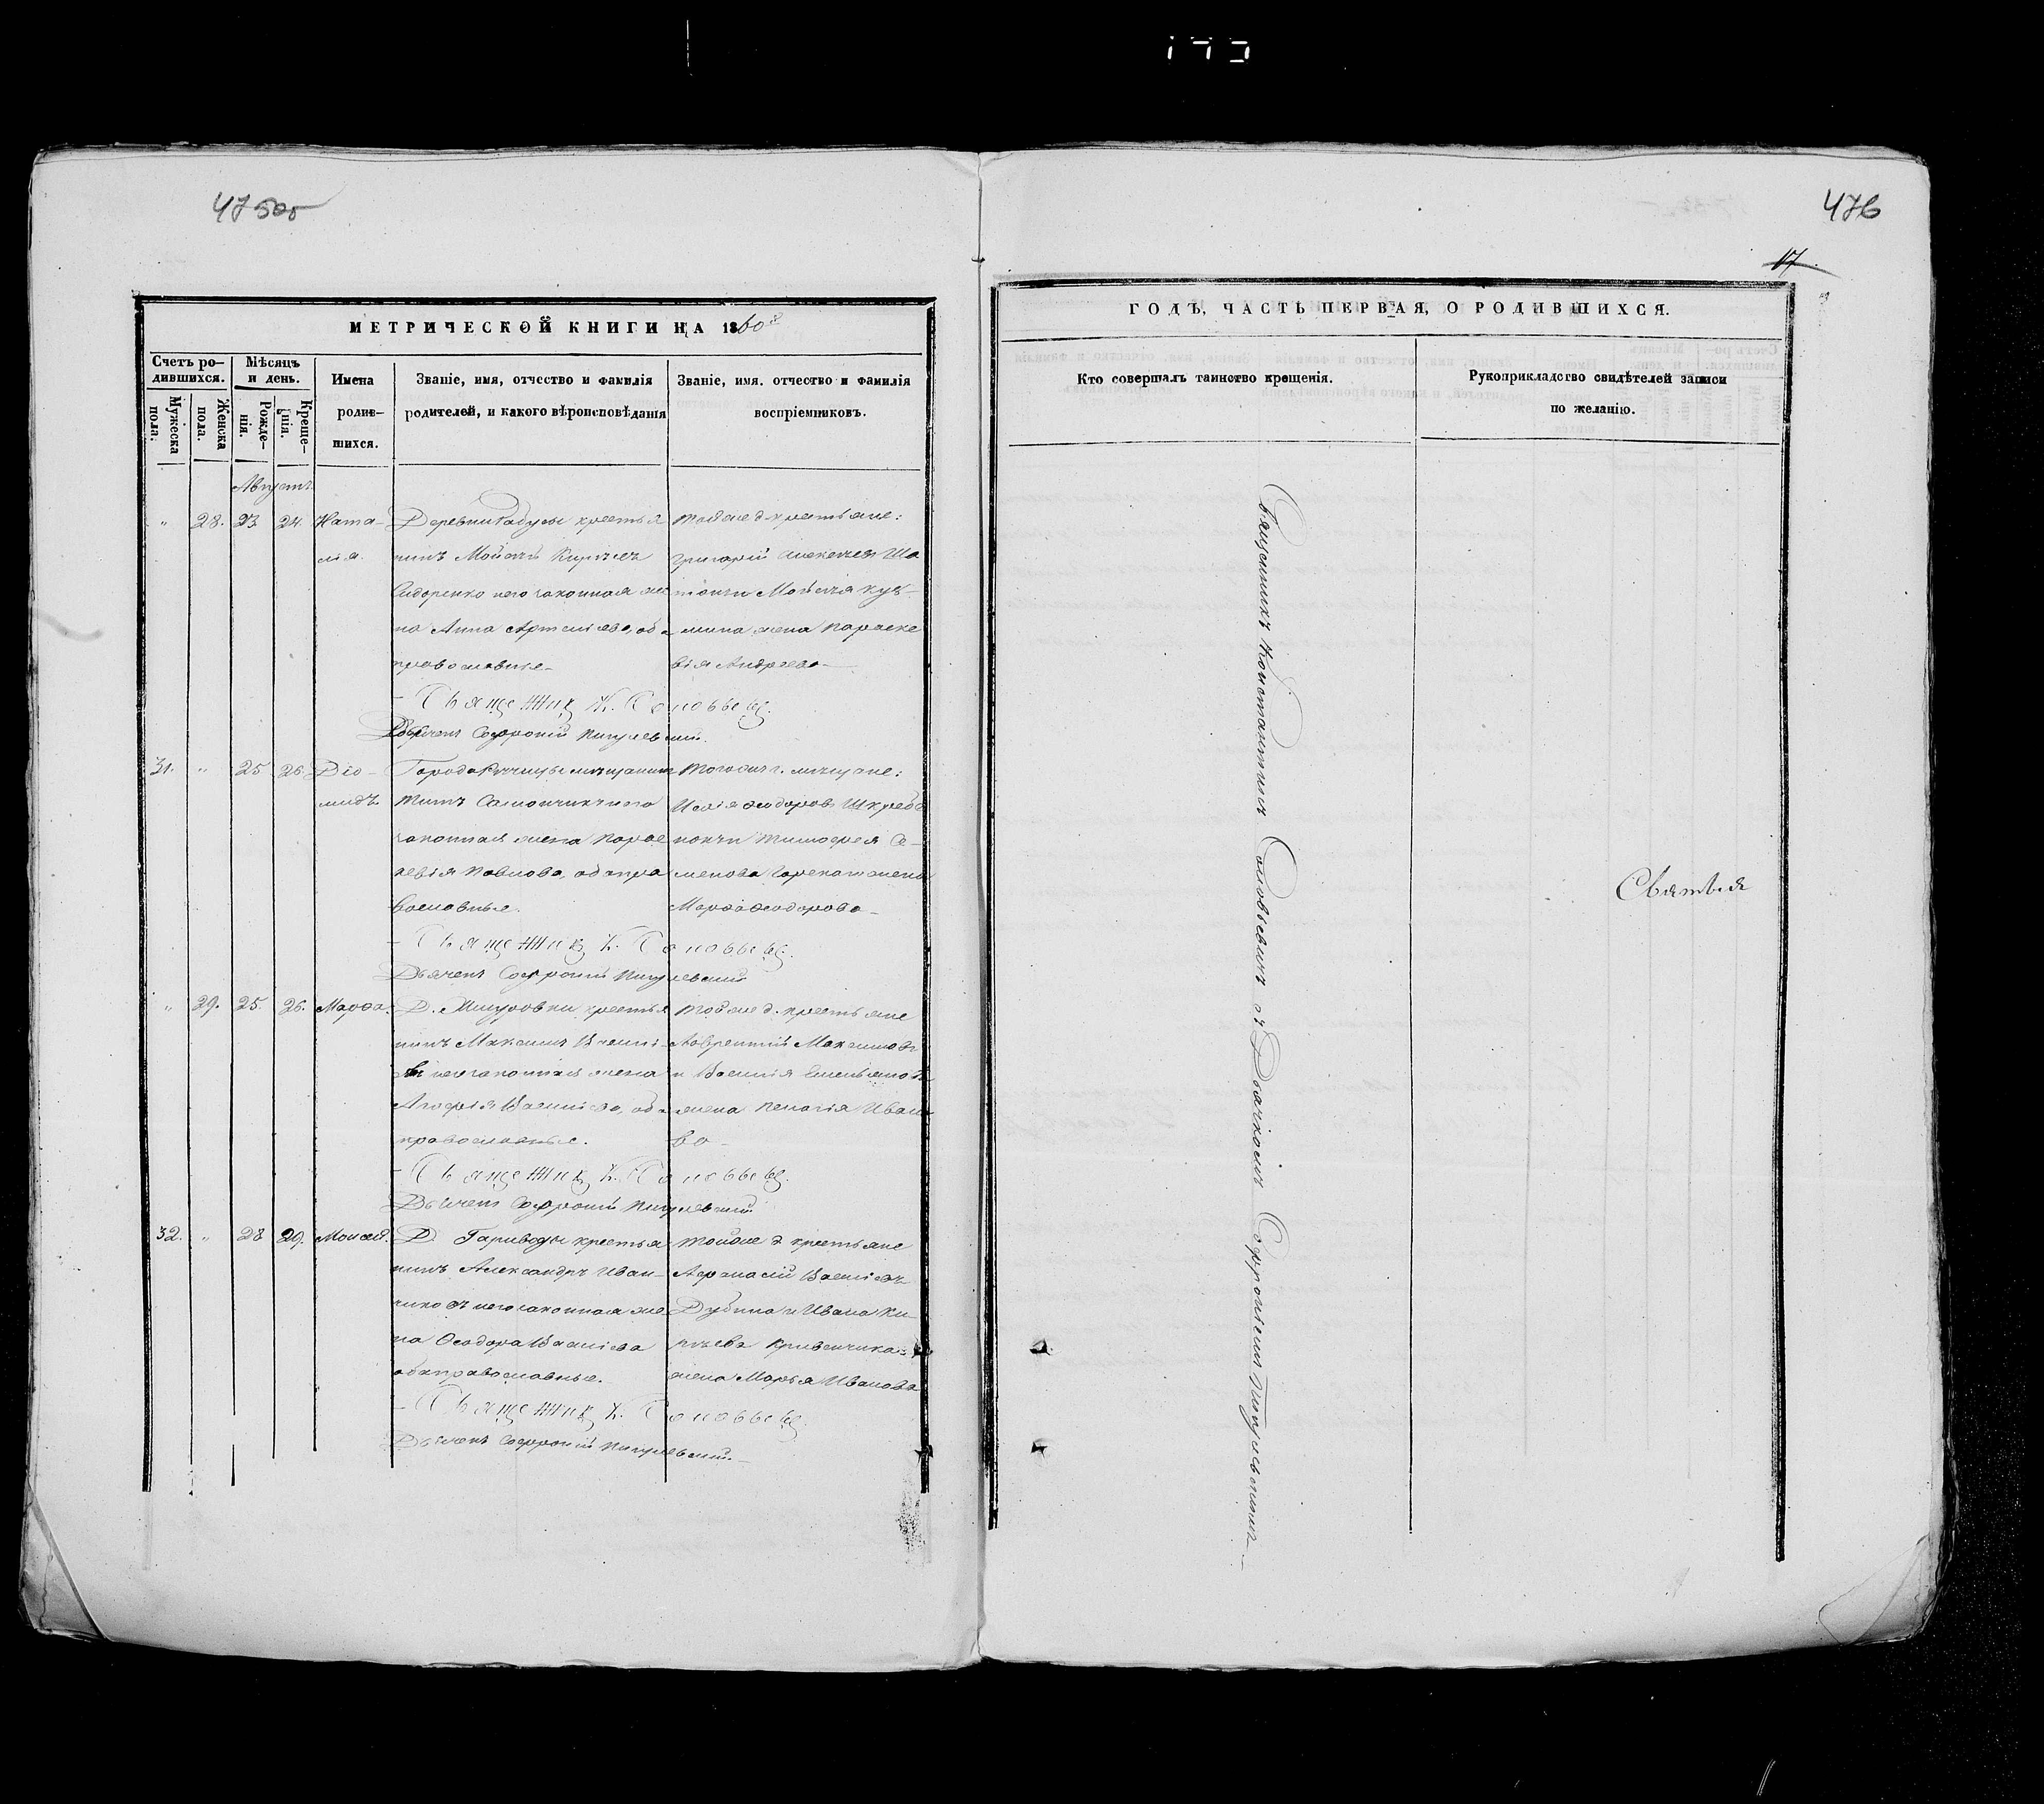 475об
476
17
МЕТРИЧЕСКОЙ КНИГИ НА 1860й
ГОДЪ, ЧАСТЬ ПЕРВАЯ, О РОДИВШИХСЯ.
Счетъ ро-
дившихся.
Мужеска
пола.
Женска
пола.
Мѣсяцъ
и день.
Рожде-
нія.
Креще-
нія.
Имена
родив-
шихся.
Званіе, имя, отчество и фамилія
родителей, и какого вѣроисповѣданія
Званіе, имя. отчество и фамилія
воспріемниковъ.
Кто совершалъ таинство крещенія.
Рукоприкладство свидѣтелей записи
по желанію.
Августъ
" 28. 23 24. Ната-
лія.
Деревни крестья
нинъ Мойсей
Сидоренко и его законная же
на Анна Артеміева, оба
православные.
Тойже д. крестьяне:
Григорій Алексеевъ
и Мойсея Кузь-
мина жена Параске
вія Андреева
Священник К. Соловьевич.
Дьячекъ Софроній Пигулевскій.
31. " 25 26. Діо-
мидъ.
Города Речицы мещанинъ
Титъ и его
законная жена Парас
кевія Павлова, оба пра
вославные.
Тогоже г. мещане:
Исаія Феодоровъ
и Тимофея Се-
менова жена
Марфа Феодорова
Священник К. Соловьевич.
Дьячекъ Софроній Пигулевскій
" 29. 25. 26. Марфа.
Д. крестья
нинъ Максимъ Василі-
въ и его законная жена
Агафія Василіева, оба
православные.
Тойже д. крестьяне
Лаврентій Максимовъ
и Василія Емельянова
жена Пелагія Ивано
ва
Священник К. Соловьевич.
Дьячекъ Софроній Пигулевскій
32. " 28 29. Моисей.
Д. Гариводы крестья
нинъ Александръ Иван-
чиковъ и его законная же
на Феодора Василіева
оба православные.
Тойже д. крестьяне
Афанасій Василіевъ
Дубина и Ивана Ки
рѣева Кривенчика
жена Марья Иванова
Священник К. Соловьевич.
Дьячекъ Софроній Пигулевскій.
Священникъ Константинъ Соловьевичъ съ Дьячкомъ Софроніемъ Пигулевскимъ
Святыя